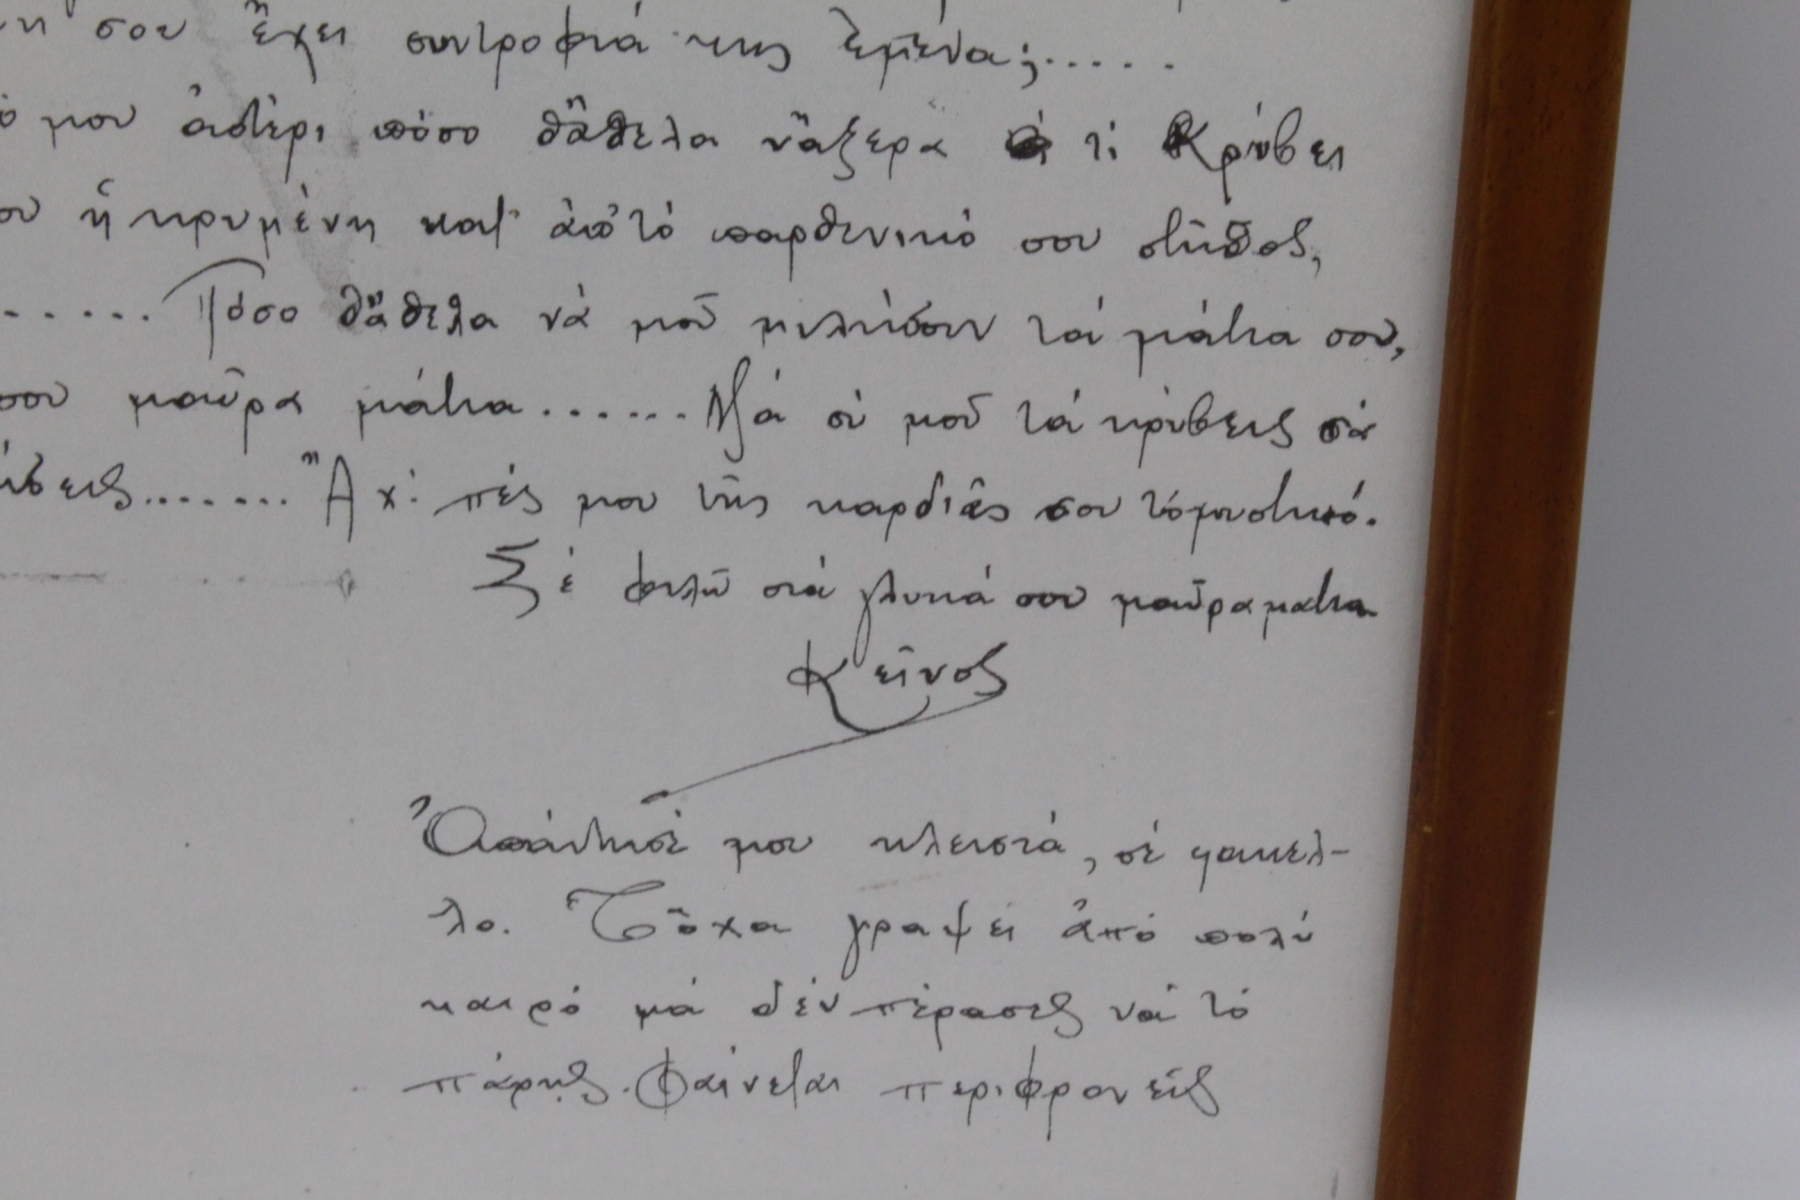 σου ἔχει συντροφιά της ἐμένα;.....
μου ἀστέρι πόσο θἄθελα νἄξερα τί Κρύβει
ἡ κρυμένη κατ' ἀπ' τό παρθενικό σου στῆθος,
...... Πόσο θἄθελα νά μοῦ μιλήσουν τά μάτια σου,
σου μαῦρα μάτια...... Μά σύ μοῦ τά κρύβεις σά
....... Ἄχ! πές μου τῆς καρδιᾶς σου τό μυστικό.
Σέ φιλῶ στά γλυκά σου μαῦρα ματια
Κεῖνος
Ἀπάντησέ μου κλειστά, σέ φακελ-
λο. Τὄχα γραψει ἀπό πολύ
καιρό μά δέν πέρασες νά τό
πάρῃς. Φαίνεται περιφρονεῖς